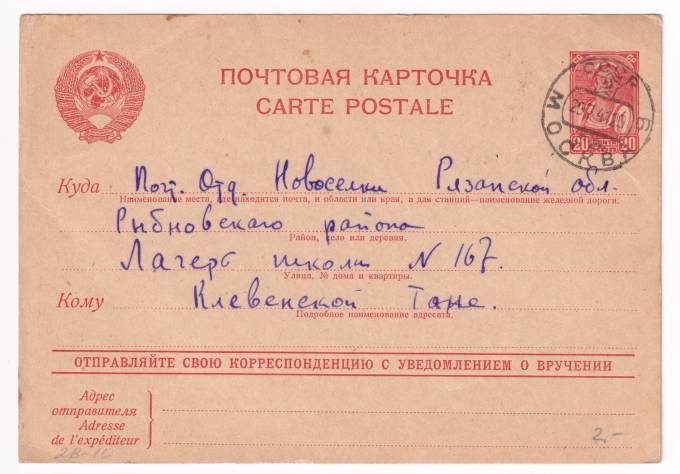 ПОЧТОВАЯ КАРТОЧКА
CARTE POSTALE
СССР
МОСКВА
Б
20 20
Куда Почт. Отд. Новоселки Рязанской обл.
Наименование места, где находится почта, и области или края, а для станций—наименование железной дороги.
Рыбновскаго района
Район, село или деревня.
Лагерь школы N 167.
Улица, № дома и квартиры.
Кому Клевенской Тане.
Подробное наименование адресата.
ОТПРАВЛЯЙТЕ СВОЮ КОРРЕСПОНДЕНЦИЮ С УВЕДОМЛЕНИЕМ О ВРУЧЕНИИ
Адрес
отправителя
Adresse
de l'expéditeur
2-
2В-16